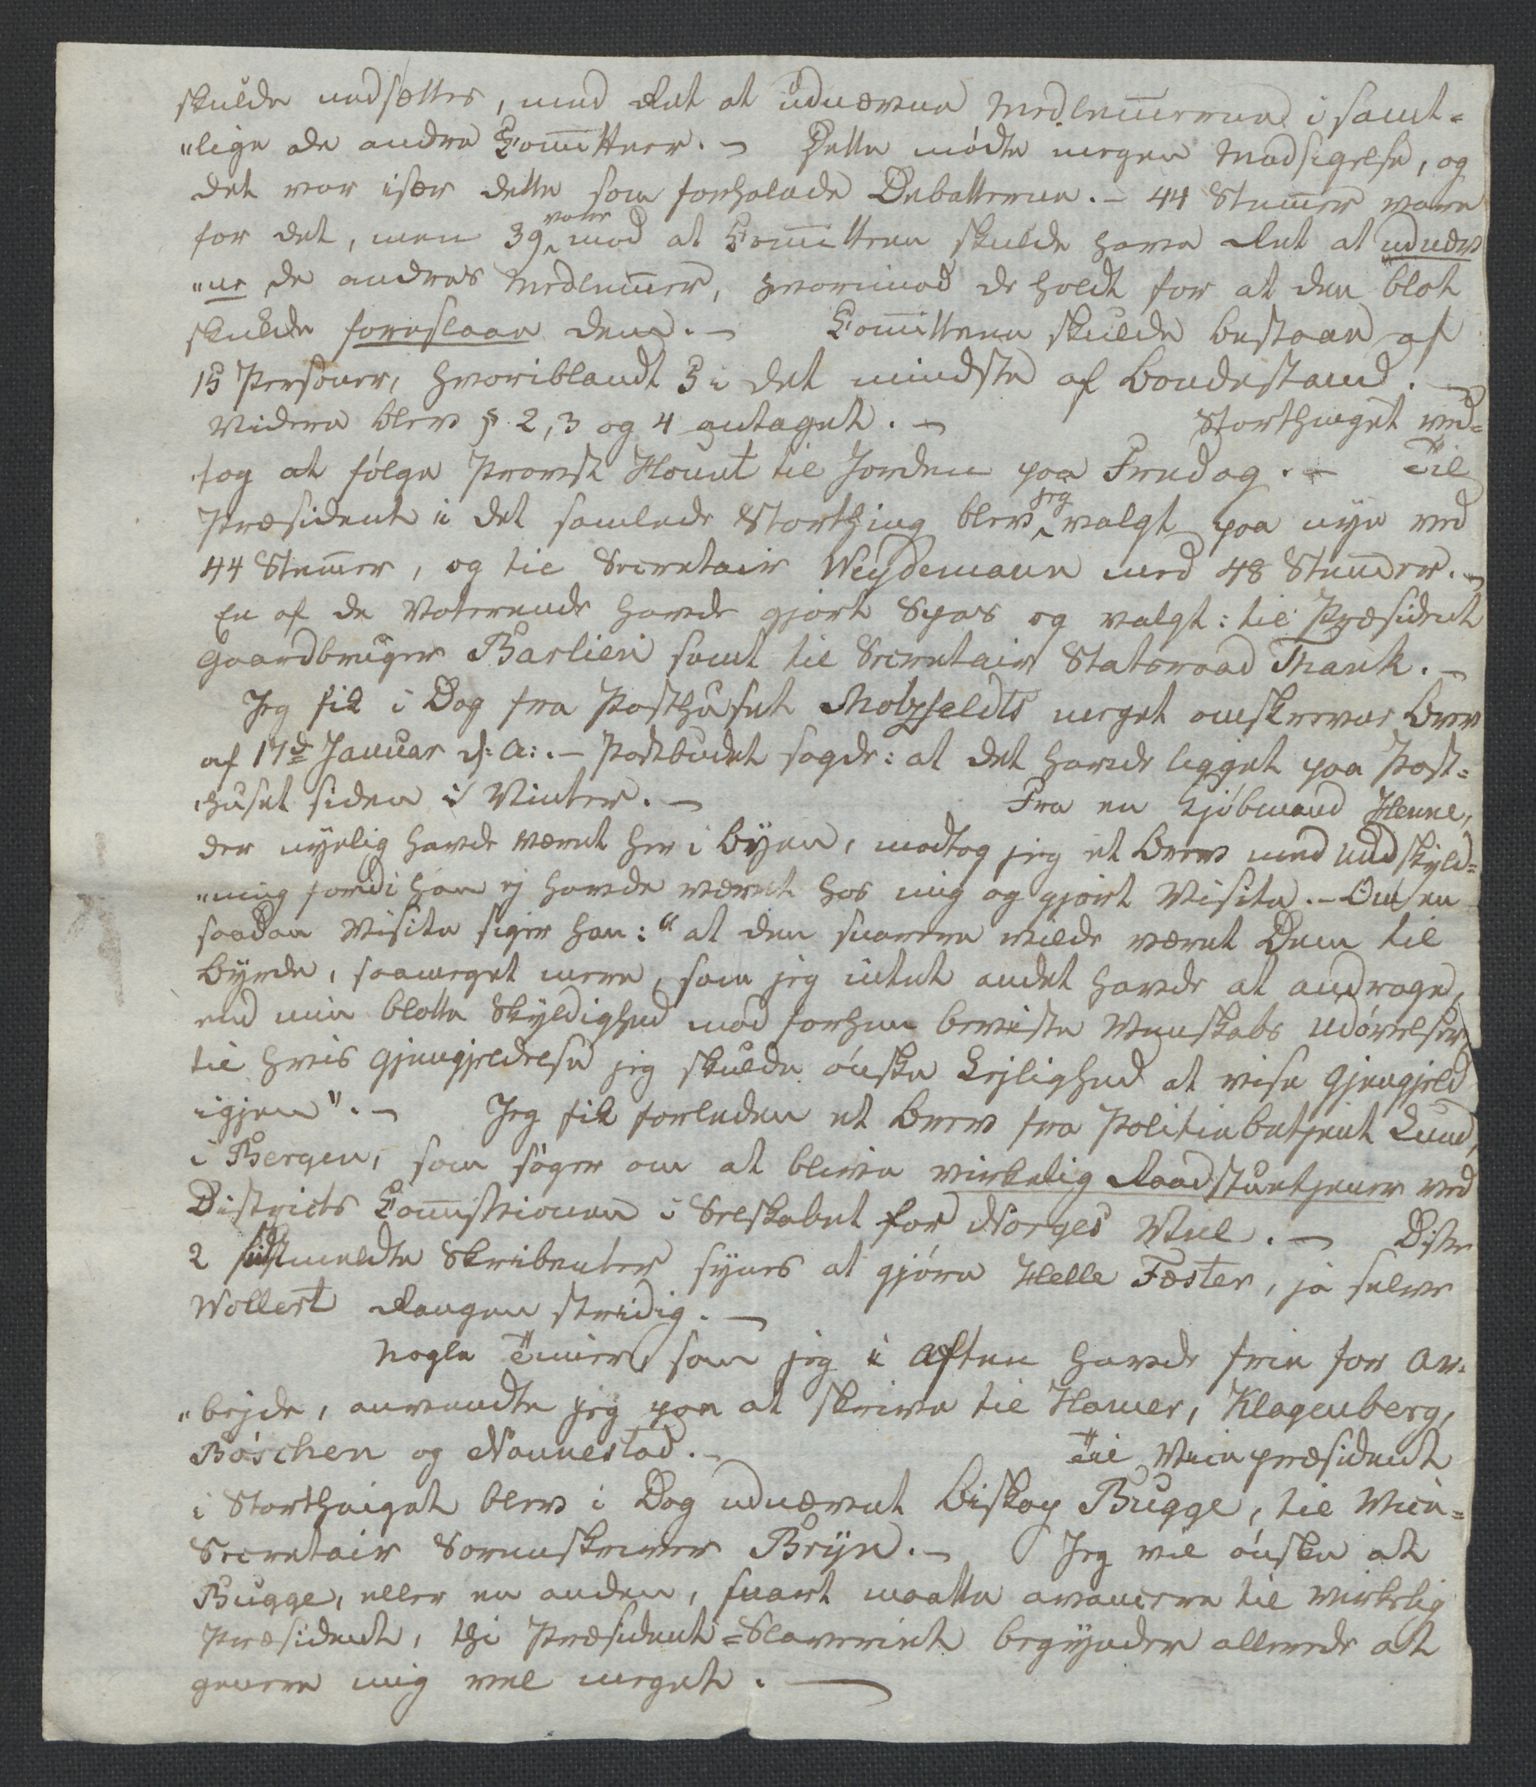 skulde nedsættes, med Ret at udnævne Medlem̅erne i samt=
"lige de andre Com̅itteer. – Dette mødte megen Modsigelse, og
det var især dette som forhalede Debatterne. – 44 Stem̅er vare
for det, men 39 vare mod at Com̅itteen skulde have Ret at udnæv
"ne de andres Medlem̅er, hvorimod de holdt for at den blot
skulde foreslaae dem. – Com̅itteen skulde bestaae af
15 Personer, hvoriblandt 3 i det mindste af Bondestand. –
Videre blev § 2, 3 og 4 antaget. – Storthinget ved=
tog at følge Provst Hount til Jorden paa Fredag. – Til
Præsident i det samlede Storthing blev jeg valgt paa nye ved
44 Stem̅er, og til Secretair Weydemann med 48 Stem̅er. –
En af de Voterende havde gjort Spas og valgt: til Præsident
Gaardbruger Barlien samt til Secretair Statsraad Thank. –
Jeg fik i Dag fra Posthuset Motzfeldts meget omskrevne Brev
af 17d Januar d: A:. – Postbudet sagde: at det havde ligget paa Post=
huset siden i Vinter. – Fra en Kjöbmand Henne,
der nyelig havde været her i Byen, modtog jeg et Brev med Undskyld=
"ning fordi han ej havde været hos mig og gjort Visite. – Om en
saadan Visite siger han: "at den snarere vilde været Dem til
Byrde, saameget mere, som jeg intet andet havde at andrage,
end min blotte Skyldighed mod forhen beviste Venskabs Udøvelser,
til hvis Gjengjeldelse jeg skulde ønske Lejlighed at vise Gjengjeld
igjen". – Jeg fik forleden et Brev fra Politiebetjent Lund,
i Bergen, som søger om at blive virkelig Raadstuetjener ved
Districts Com̅issionen i Selskabet for Norges Vel. – Disse
2 sidstmeldte Skribenter synes at gjøre Helle Fæster, ja selve
Wollert Rangen stridig. –
Nogle Timer, som jeg i Aften havde frie for Ar=
"bejde, anvendte jeg paa at skrive til Homer, Klagenberg,
Böschen og Nannestad. – Til Vicepræsident
i Storthinget blev i Dag udnævnt Biskop Bugge, til Vice=
Secretair Sorenskriver Bryn. – Jeg vil ønske at
Bugge, eller en anden, snart maatte avancere til virkelig
Præsident, thi Præsident=Slaveriet begynder allerede at
genere mig vel meget. –